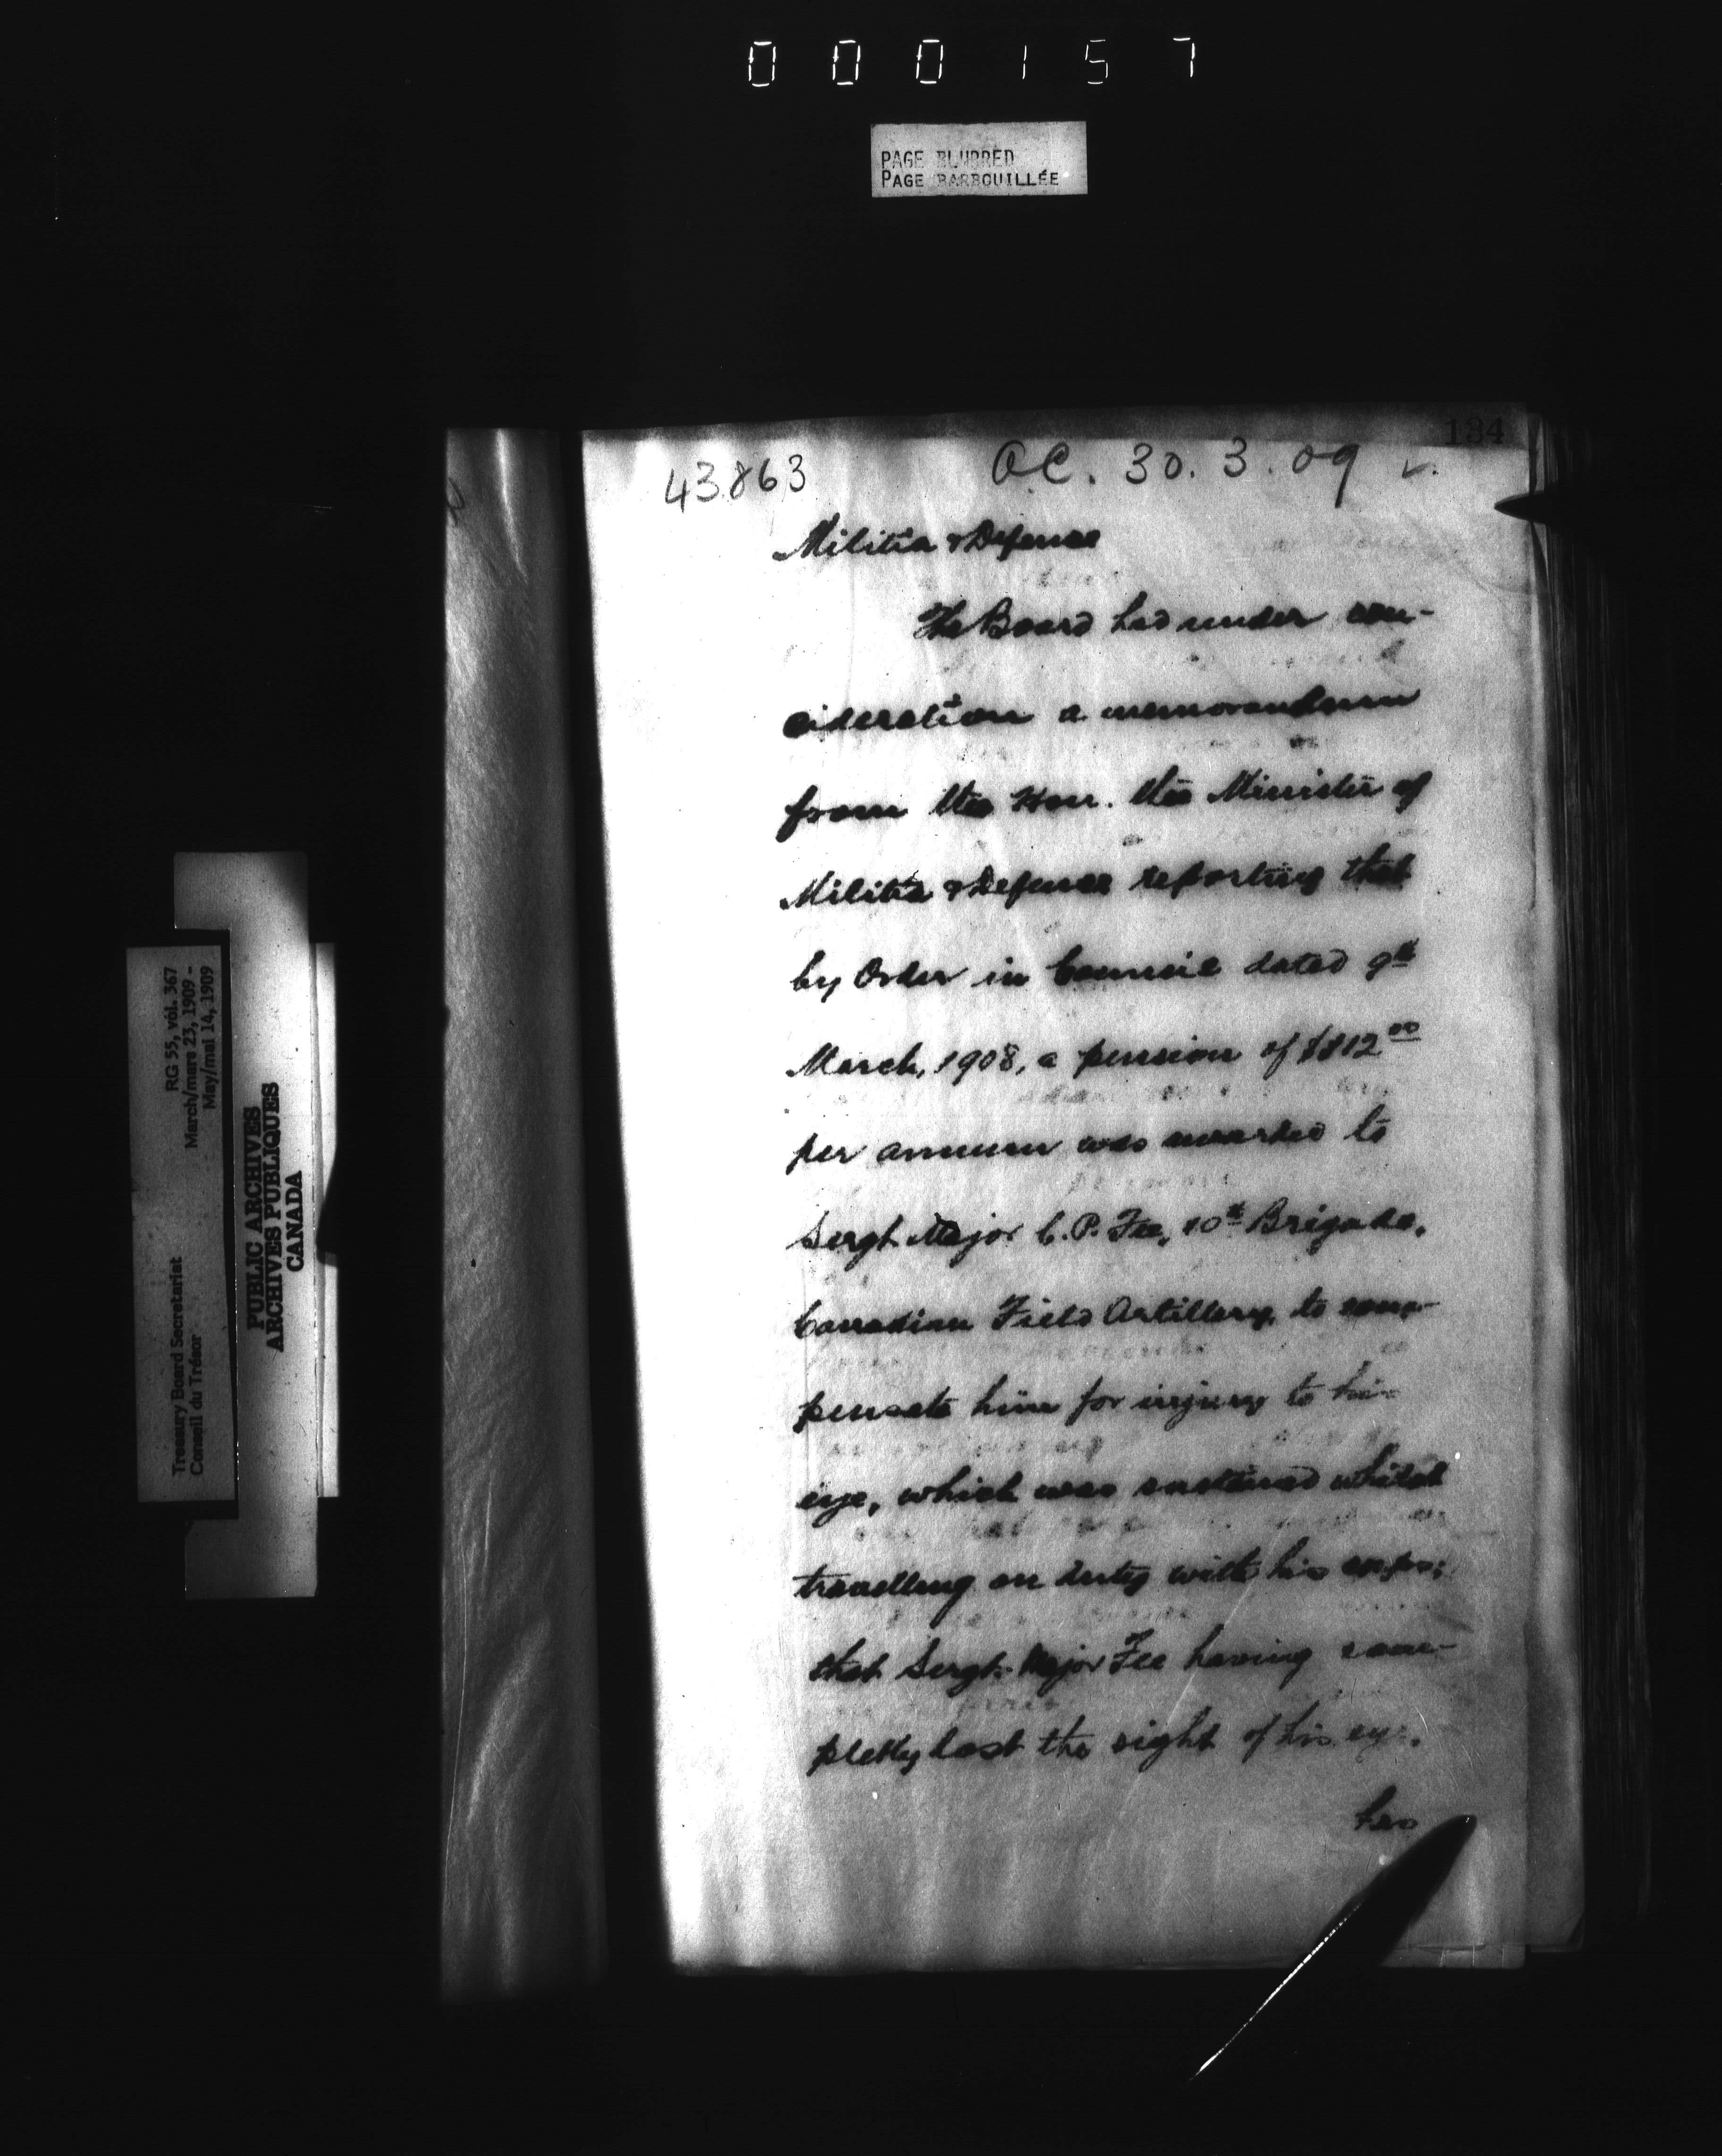 000157
PAGE BLURRED
PAGE BARBOUILLÉE
134
43863
O.C. 30.3.09
Militia & Defence
The Board had under con-
sideration a memorandum
from the Hon. the Minister of
Militia & Defence reporting that
by Order in Council dated 9th
March, 1908, a pension of $112 00
per annum was awarded to
Sergt. Major C.P. Fee, 10th Brigade,
Canadian Field Artillery, to com-
pensate him for injury to his
eye, which was sustained whilst
travelling on duty with his corps;
that Sergt. Major Fee having com-
pletly lost the sight of his eye.
has
RG 55, vol. 367
March/mars 23, 1909 -
May/mai 14, 1909
Treasury Board Secretariat
Conseil du Trésor
PUBLIC ARCHIVES
ARCHIVES PUBLIQUES
CANADA